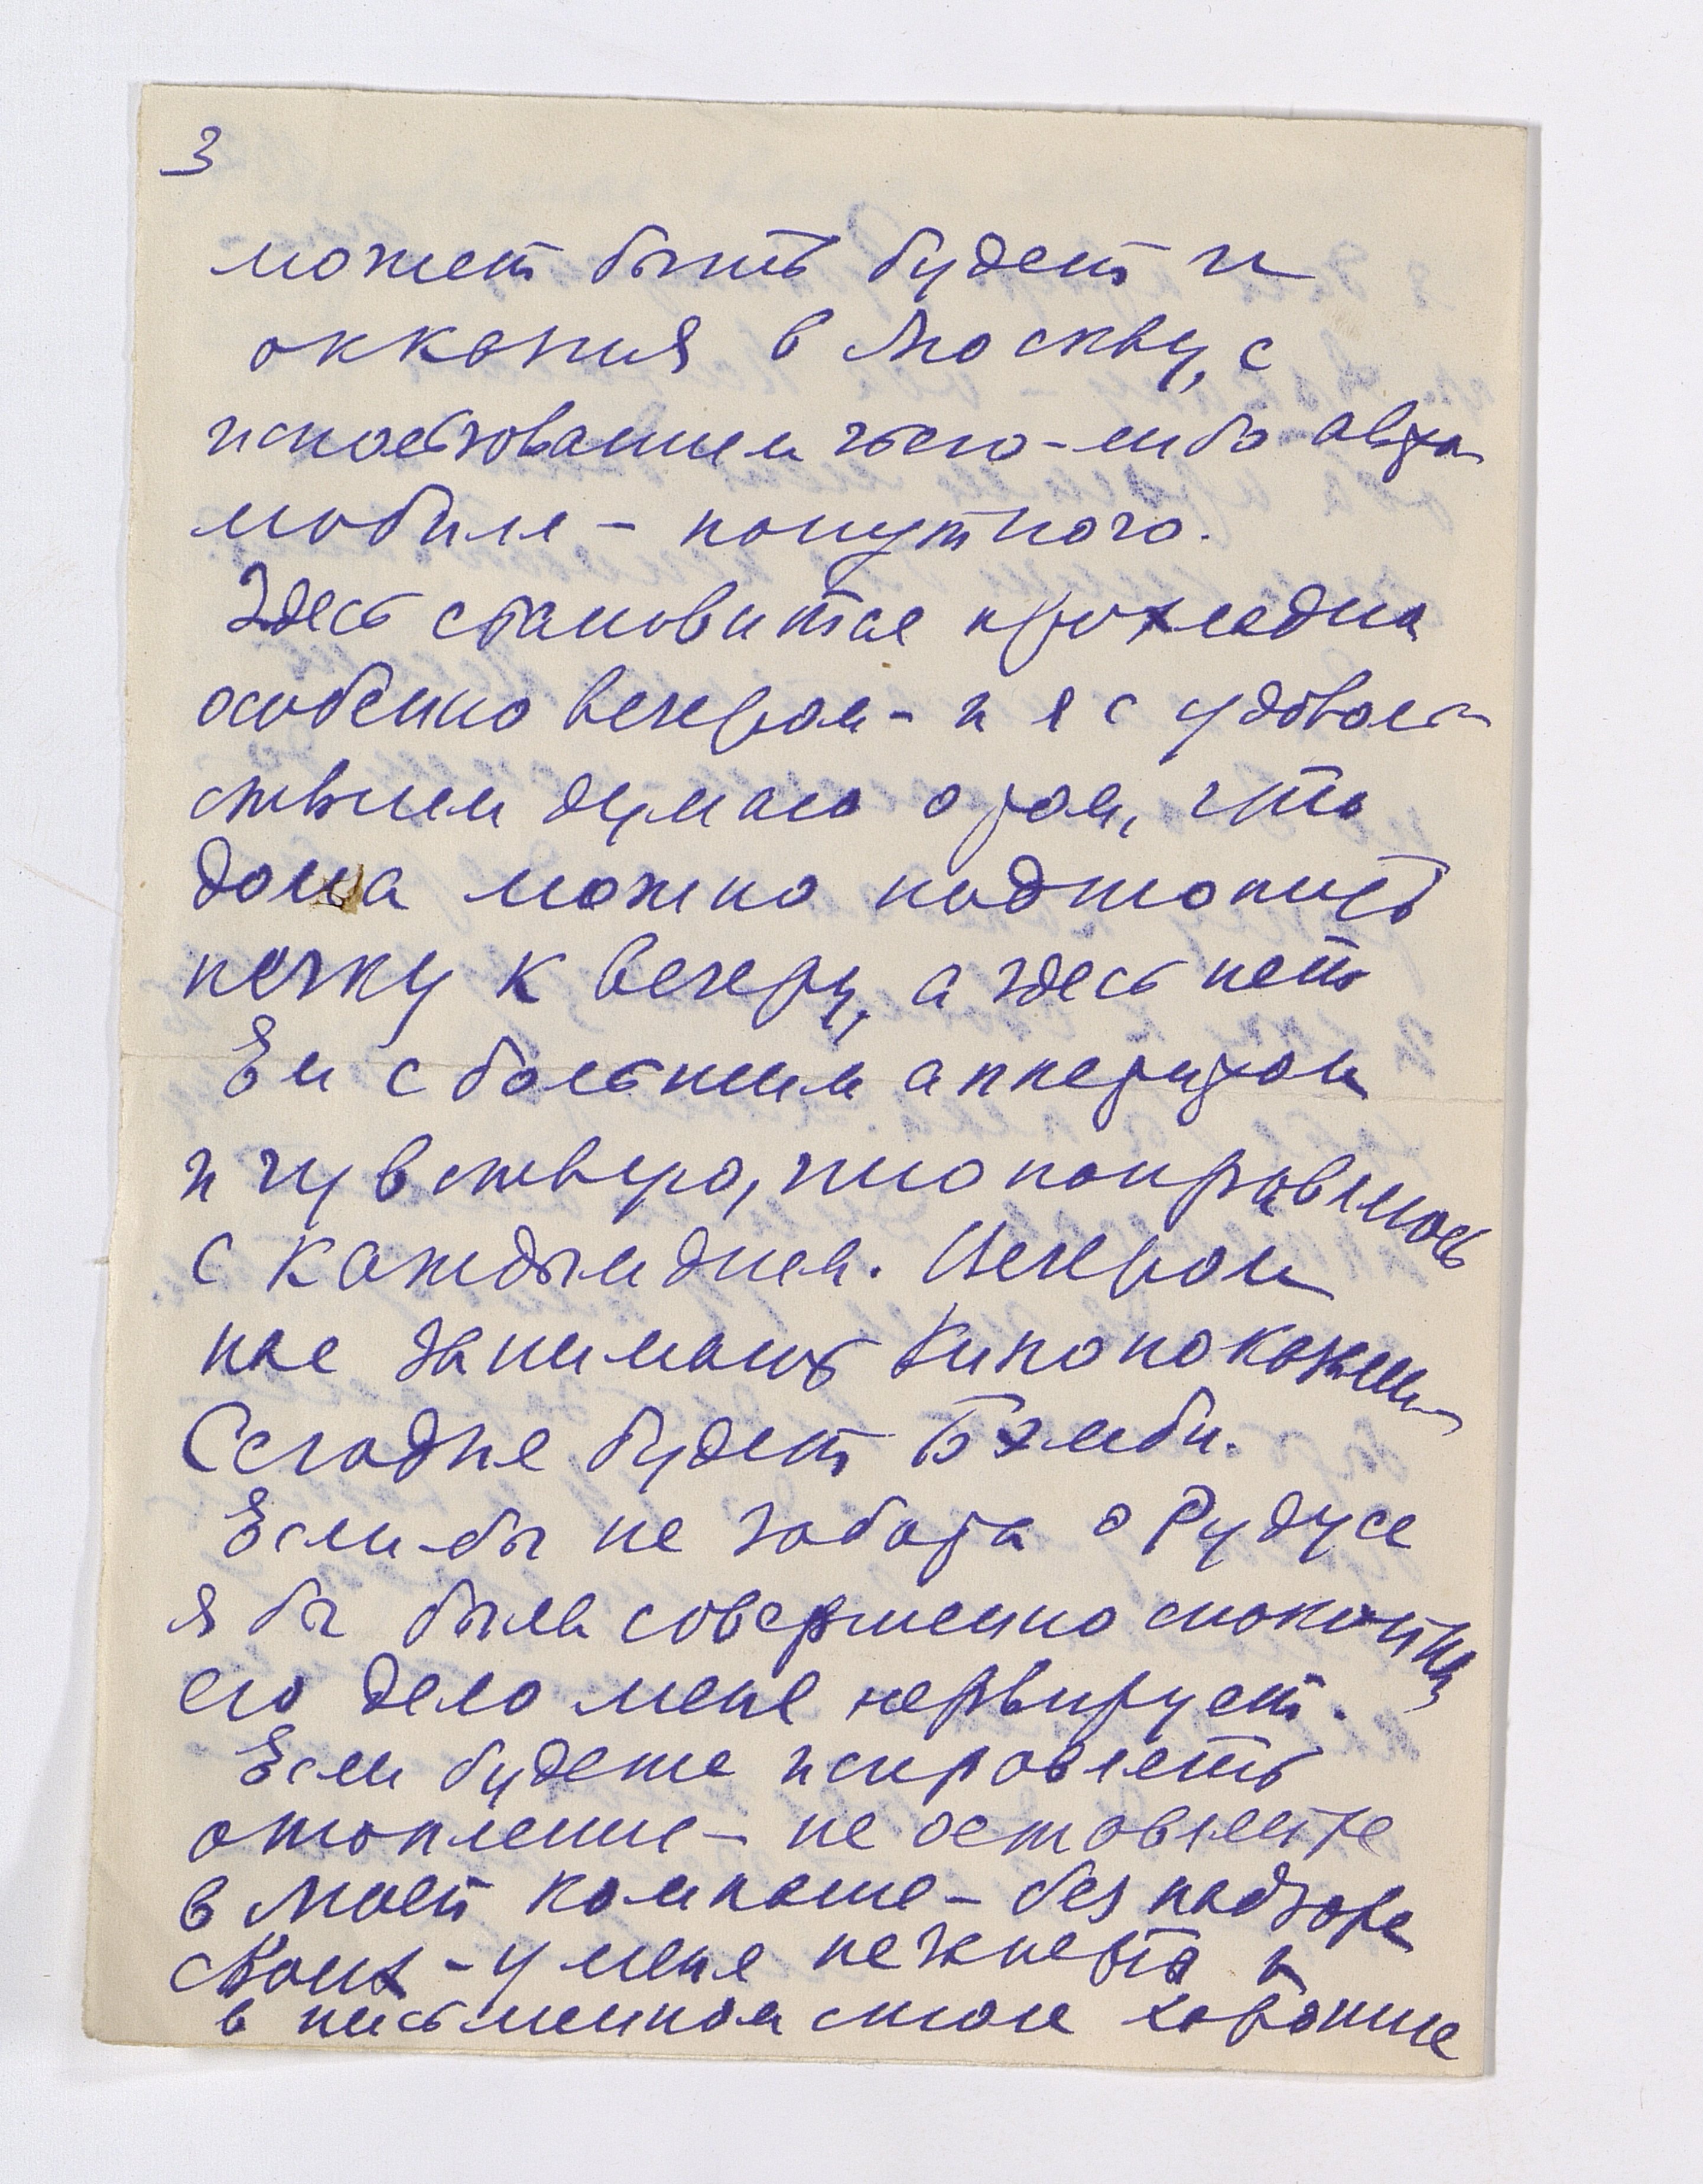 3
может быть будет и
оккапия в Москву, с
использованием чьего-либо авто
мобиля - попутного.
Здесь становится прохладно
особенно вечером - и я с удоволь-
ствием думаю о том, что
дома можно подтопить
печку к вечеру, а здесь нет
Ем с большим аппетитом
и чувствую, что поправляюсь
с каждым днем. Вечером
нас занимают кинопоказами
Сегодня будет Бэмби.
Если-бы не забота о Рудусе
я бы была совершенно спокойна,
его дело меня нервирует.
Если будете исправлять
отопление - не оставляйте
в моей комнате - без надзора
своих - у меня не
в письменном столе хорошие